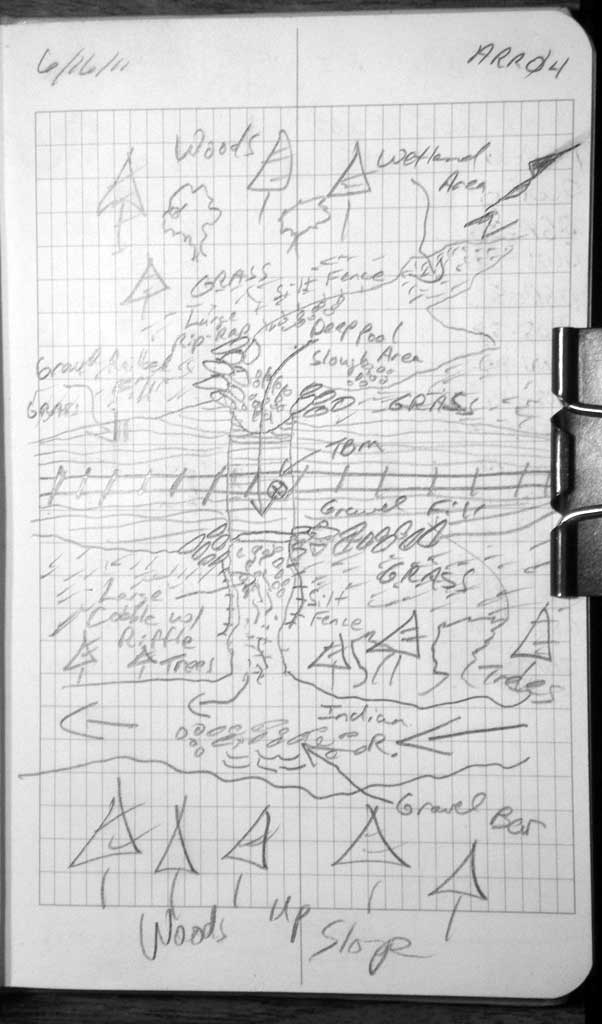 6/16/11
ARRØ4
Woods
Wetland
Area
N
GRASS
Silt Fence
Large
Rip-Rap
Deep pool
Slough Area
GRASS
TBM
Gravel Fill
GRASS
Large
Cobble w/
Riffle
Silt
Fence
Trees
Trees
Indian
R.
Gravel Bar
Woods Up Slope